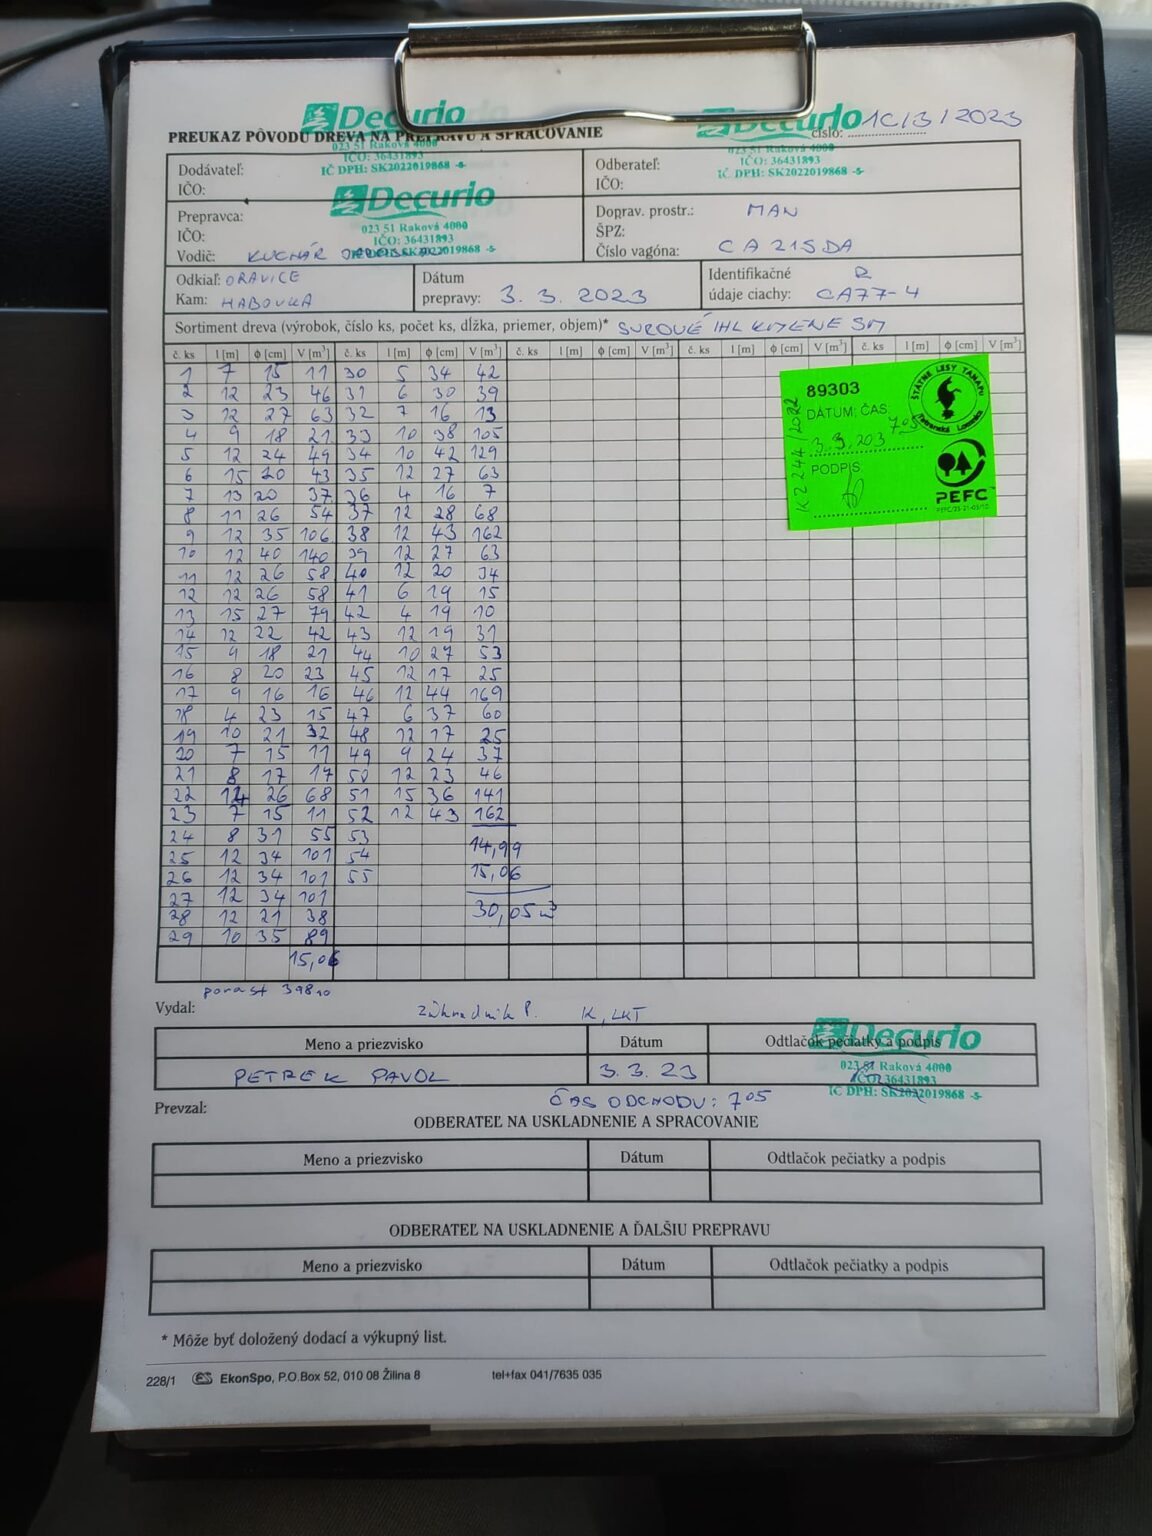 Decurio
Decurio
PREUKAZ PÔVODU DREVA NA PREPRAVU A SPRACOVANIE
číslo: 10/3/2023
023 51 Raková 4000
IČO: 36431893
IČ DPH: SK2022019868 -5-
IČO: 36431893
IČ DPH: SK2022019868 -5-
Dodávateľ:
IČO:
Odberateľ:
IČO:
Decurio
023 51 Raková 4000
IČO: 36431893
IČ DPH: SK2022019868 -5-
Prepravca:
IČO:
Vodič: KUCHÁR
Doprav. prostr.: MAN
ŠPZ:
Číslo vagóna: CA 215DA
Odkiaľ: ORAVICE
Kam: HABOVKA
Dátum
prepravy: 3. 3. 2023
Identifikačné R
údaje ciachy: CA77-4
Sortiment dreva (výrobok, číslo ks, počet ks, dĺžka, priemer, objem)* SUROVÉ IHL KMENE SM
č. ks l [m] φ [cm] V [m³] č. ks l [m] φ [cm] V [m³] č. ks l [m] φ [cm] V [m³] č. ks l [m] φ [cm] V [m³] č. ks l [m] φ [cm] V [m³]
1 7 15 11 30 5 34 42
2 12 23 46 31 6 30 39
3 12 27 63 32 7 16 13
4 9 18 21 33 10 38 105
5 12 24 49 34 10 42 129
6 15 20 43 35 12 27 63
7 13 20 37 36 4 16 7
8 11 26 54 37 12 28 68
9 12 35 106 38 12 43 162
10 12 40 140 39 12 27 63
11 12 26 58 40 12 20 34
12 12 26 58 41 6 19 15
13 15 27 79 42 4 19 10
14 12 22 42 43 12 19 31
15 9 18 21 44 10 27 53
16 8 20 23 45 12 17 25
17 9 16 16 46 12 44 169
18 4 23 15 47 6 37 60
19 10 21 32 48 12 17 25
20 7 15 11 49 9 24 37
21 8 17 17 50 12 23 46
22 14 26 68 51 15 36 141
23 7 15 11 52 12 43 162
24 8 31 55 53
25 12 34 101 54
26 12 34 101 55
27 12 34 101
28 12 21 38
29 10 35 89
14,99
15,06
30,05 m³
15,06
89303
DÁTUM, ČAS:
3.3.203 7 05
PODPIS
K2244/2022
ŠTÁTNE LESY TANAPU
Tatranská Lomnica
PEFC
porast 398 10
Vydal:
Záhradník P. K, LKT
Meno a priezvisko Dátum Odtlačok pečiatky a podpis
PETREK PAVOL 3.3. 23
Decurio
023 51 Raková 4000
IČO: 36431893
IČ DPH: SK2022019868 -5-
Prevzal:
ČAS ODCHODU: 7 05
ODBERATEĽ NA USKLADNENIE A SPRACOVANIE
Meno a priezvisko Dátum Odtlačok pečiatky a podpis
ODBERATEĽ NA USKLADNENIE A ĎALŠIU PREPRAVU
Meno a priezvisko Dátum Odtlačok pečiatky a podpis
* Môže byť doložený dodací a výkupný list.
228/1 ES EkonSpo, P.O.Box 52, 010 08 Žilina 8 tel+fax 041/7635 035